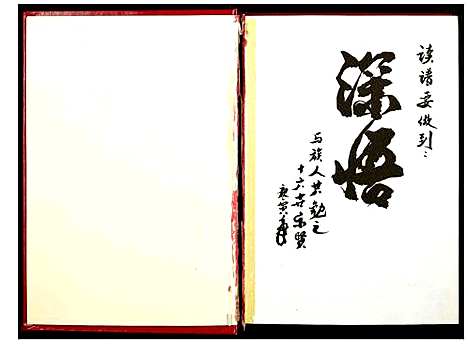 读谱要做到:
深悟
与族人共勉之
十六世乐贤
庚寅年